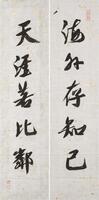 海外存知己
天涯若比鄰